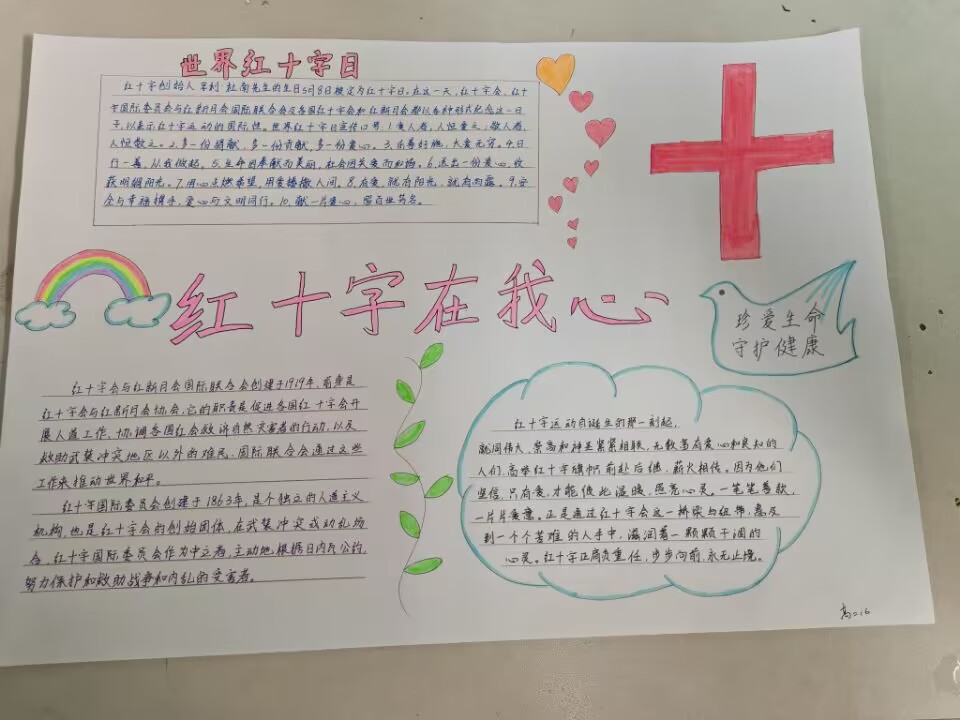 世界红十字日
红十字创始人亨利·杜南先生的生日5月8日被定为红十字日。在这一天,红十字会、红十
字国际委员会与红新月会国际联合会及各国红十字会和红新月会都以各种形式纪念这一日
子,以表示红十字运动的国际性。世界红十字日宣传口号:1.爱人者,人恒爱之;敬人者,
人恒敬之。2.多一份捐献,多一份贡献,多一份爱心。3.乐善好施,大爱无穷。4.日
行一善,从我做起。5.生命因奉献而美丽,社会因关爱而和扬。6.送出一份爱心,收
获明媚阳光。7.用心点燃希望,用爱播撒人间。8.有爱,就有阳光,就有雨露。9.安
全与幸福携手,爱心与文明同行。10.献一片爱心,留百世芳名。
红十字在我心
珍爱生命
守护健康
红十字会与红新月会国际联合会创建于1919年,前身是
红十字会与红新月会协会,它的职责是促进各国红十字会开
展人道工作、协调各国红会救济自然灾害者的行动,以及
救助武装冲突地区以外的难民,国际联合会通过这些
工作来推动世界和平。
红十字国际委员会创建于1863年,是个独立的人道主义
机构,也是红十字会的创始团体,在武装冲突或动乱场
合,红十字国际委员会作为中立者,主动地根据日内瓦公约,
努力保护和救助战争和内乱的受害者。
红十字运动自诞生的那一刻起,
就同伟大、崇高和神圣紧紧相联,无数富有爱心和良知的
人们,高举红十字旗帜前赴后继,薪火相传。因为他们
坚信,只有爱,才能彼此温暖,照亮心灵。一笔笔善款,
一片片爱意。正是通过红十字会这一桥梁与纽带,惠及
到一个个苦难的人手中,滋润着一颗颗干涸的
心灵。红十字正肩负重任,步步向前,永无止境。
高二16